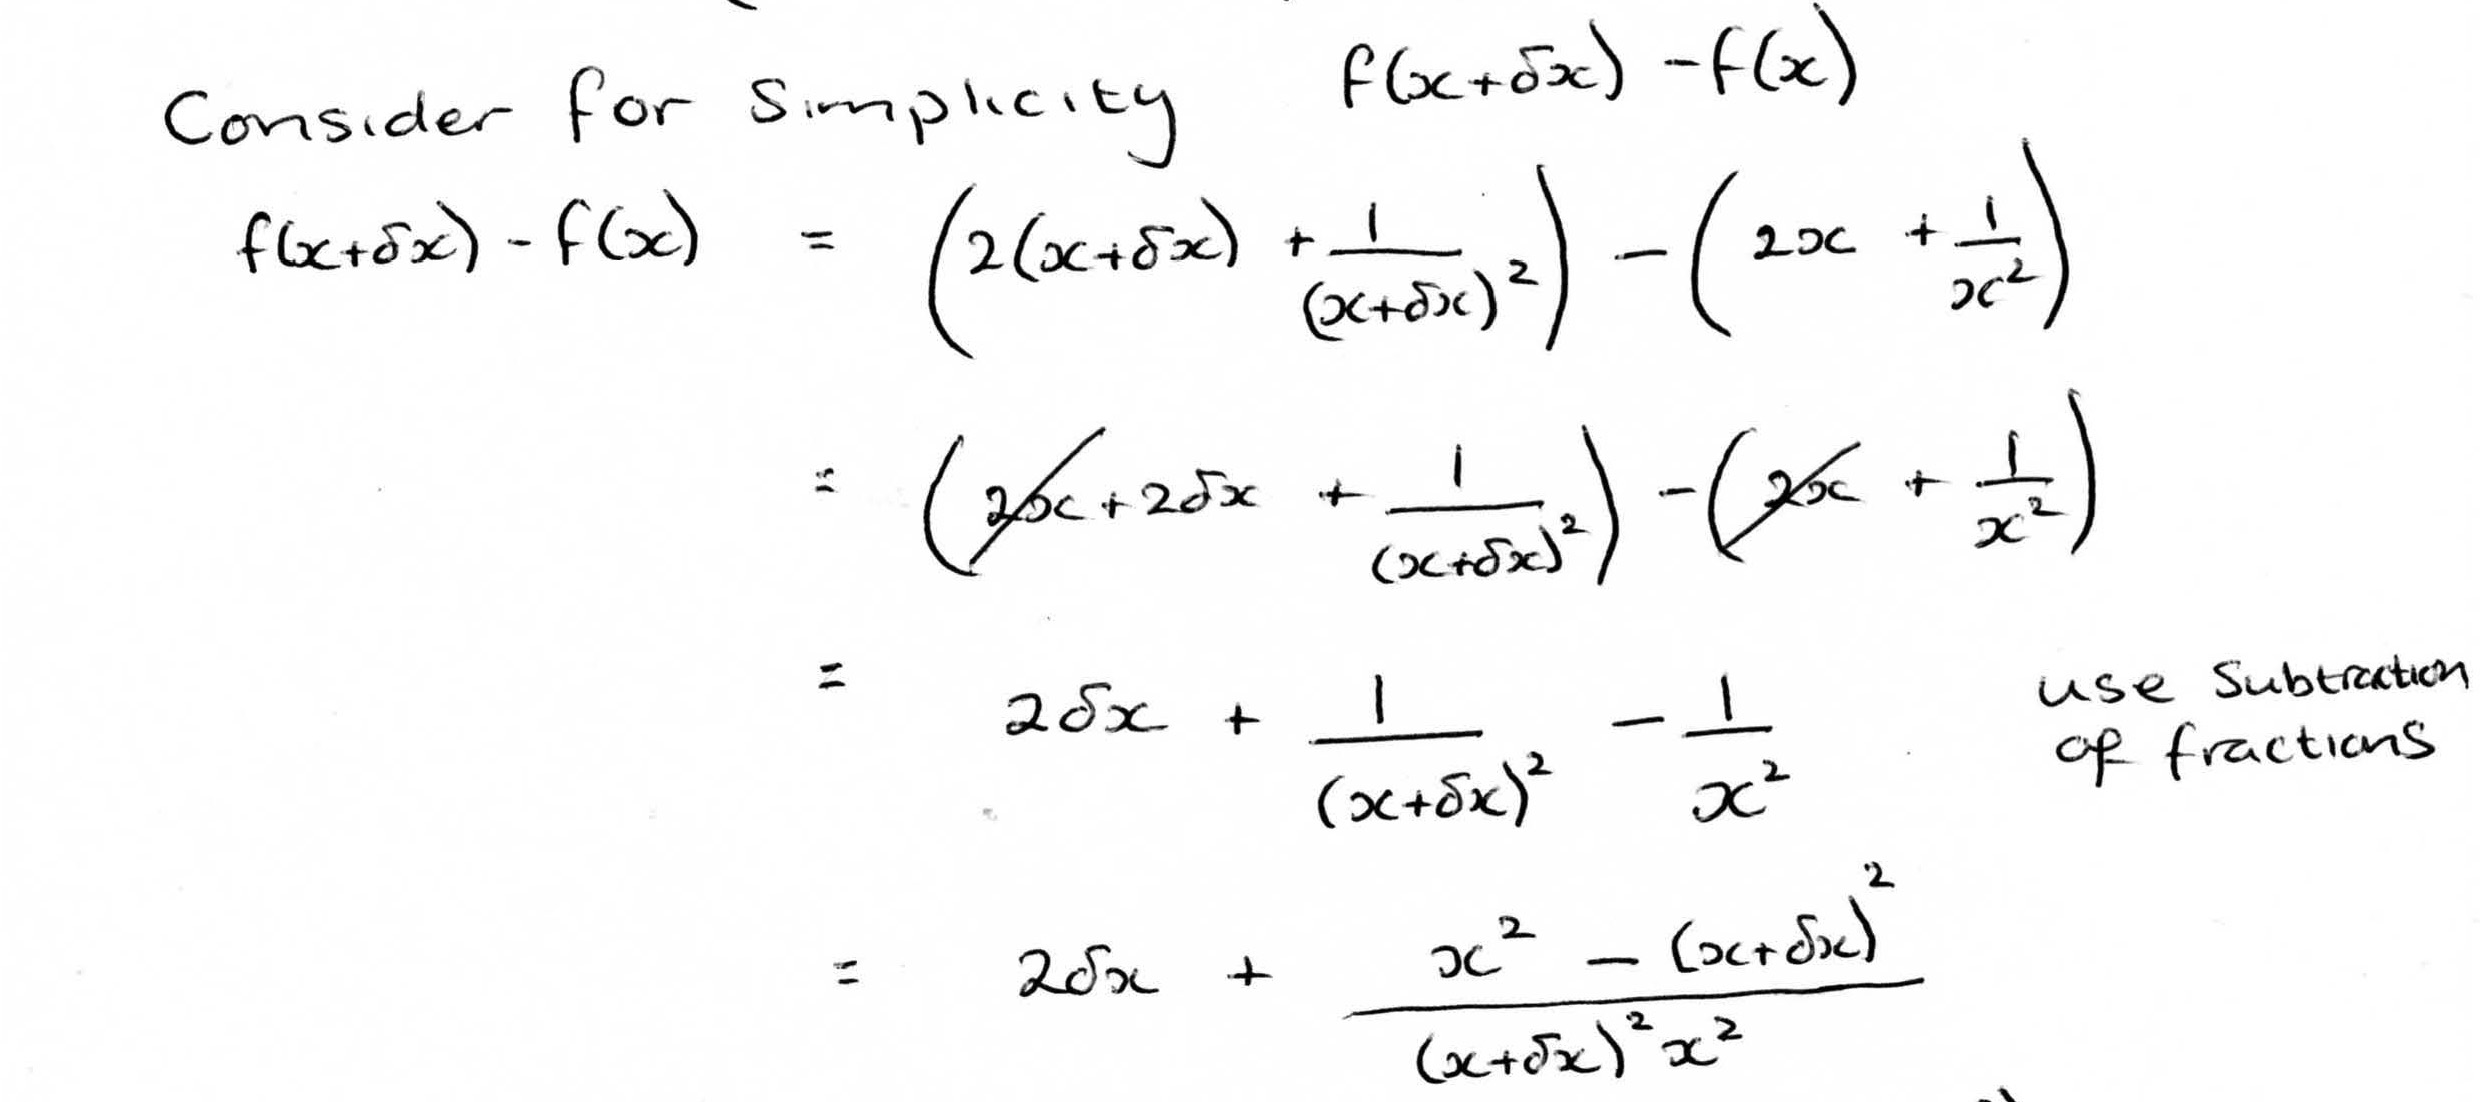 Consider for simplicity f(x+δx) - f(x)
f(x+δx) - f(x) = (2(x+δx) + 1/(x+δx)²) - (2x + 1/x²)
= (2x + 2δx + 1/(x+δx)²) - (2x + 1/x²)
= 2δx + 1/(x+δx)² - 1/x² use subtraction
of fractions
= 2δx + (x² - (x+δx)²)/((x+δx)² x²)